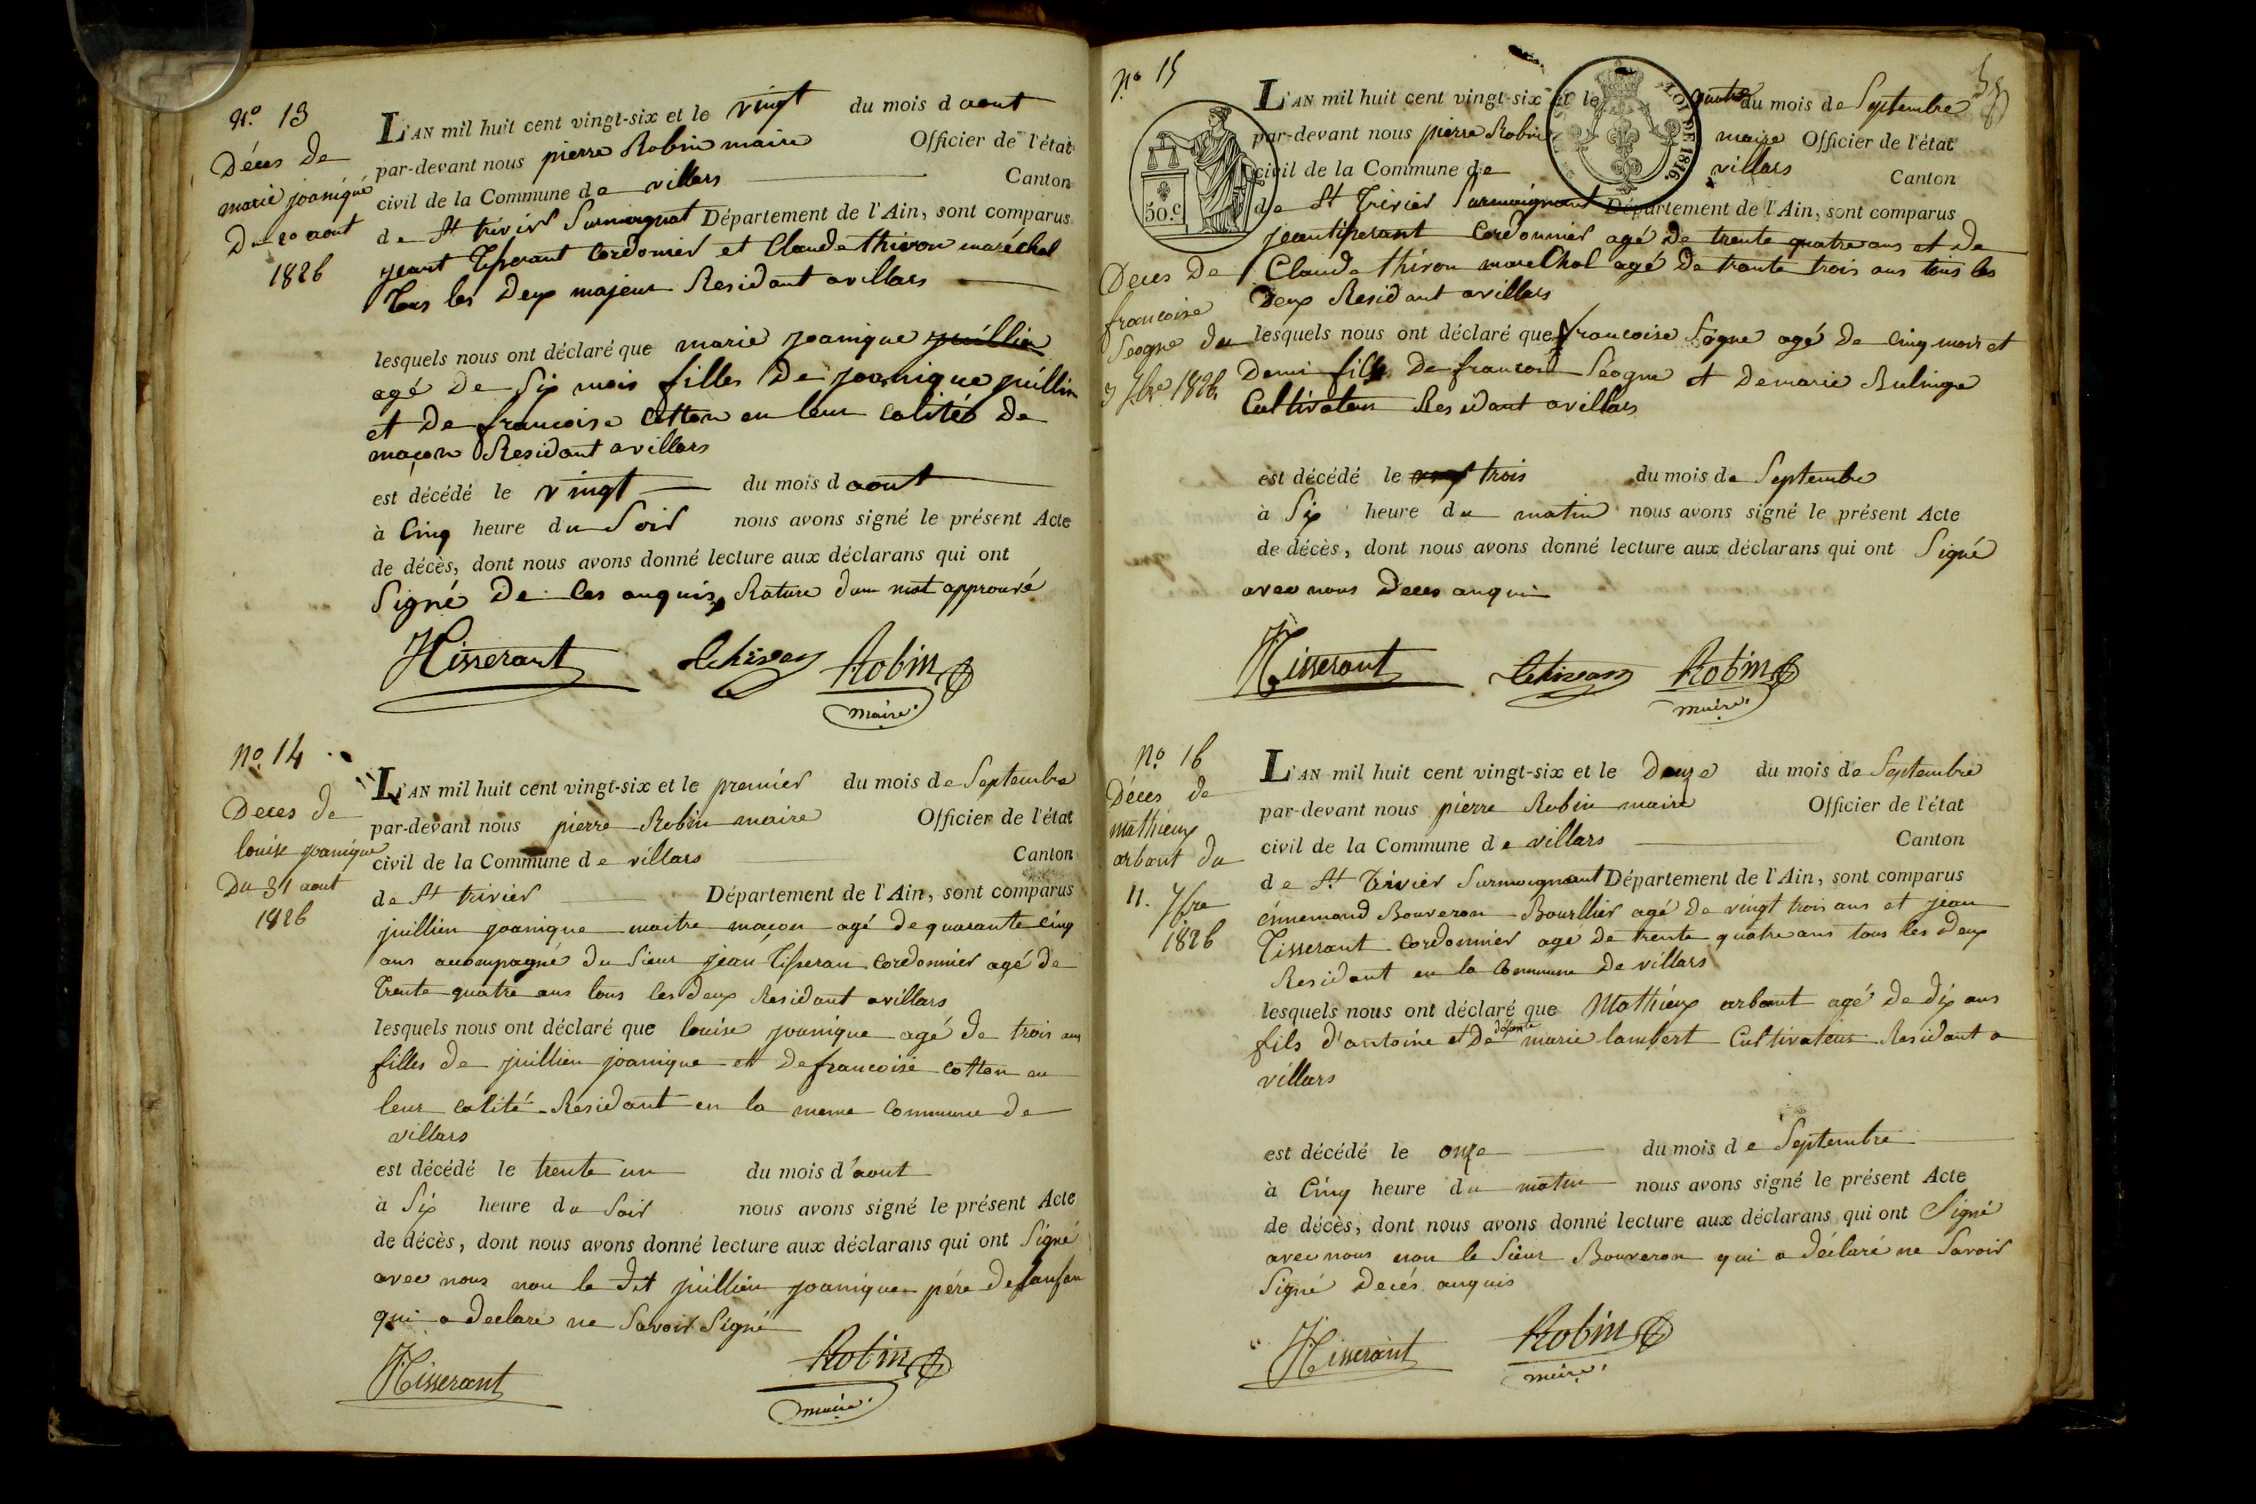 N.o 13
Déces de
marie joanique
Du 20 aout
1826
L'AN mil huit cent vingt-six et le vingt du mois d aout
par-devant nous pierre Robin maire Officier de l'état
civil de la Commune de villars Canton
de St trivier Surmoignat Département de l'Ain, sont comparus
jeant Tisserant Cordonier et Claude thivon maréchal
tous les Deux majeur Residant avillars
lesquels nous ont déclaré que marie joanique juillien
agé De Six mois filles De joanique juillin
et De francoise Cotton en leur Calités De
maçon Residant avillars
est décédé le vingt du mois d aout
à Cinq heure du Soir nous avons signé le présent Acte
de décès, dont nous avons donné lecture aux déclarans qui ont
Signé De ces anquis, Rature dun mot approuvé
JTisserant Cthivon Robin
maire
No. 14
Deces de
louise joanique
Du 31 aout
1826
L'AN mil huit cent vingt-six et le premier du mois de Septembre
par-devant nous pierre Robin maire Officier de l'état
civil de la Commune de villars Canton
de St trivier Département de l'Ain, sont comparus
juillien joanique maitre maçon agé de quarante cinq
ans accompagné du Sieur jean Tisseran Cordonnier agé de
Trente quatre ans tous les deux Residant avillars
lesquels nous ont déclaré que louise joanique agé de trois ans
filles de juillien joanique et De francoise cotton en
leur calité Residant en la meme Commune de
villars
est décédé le trente un du mois d'aout
à Six heure du Soir nous avons signé le présent Acte
de décès, dont nous avons donné lecture aux déclarans qui ont Signé
avec nous non le dit juillien joanique pére de lanfan
qui a declaré ne Savoir Signé
JTisserant Robin
maire
No 15
Deces De
francoise
Seogne du
3 7bre 1826
50.c
LOI DE 1816.
L'AN mil huit cent vingt-six et le quatre du mois de Septembre
par-devant nous pierre Robin maire Officier de l'état
civil de la Commune de villars Canton
de St Trivier Surmoignant Département de l'Ain, sont comparus
jeantisserant Cordonnier agé de trente quatre ans et de
Claude thivon mareChal agé De trante trois ans tous les
Deux Residant avillars
lesquels nous ont déclaré que francoise Sogne agé De Cinq mois et
Demi fille De francois Seogne et Demarie Rulinge
Cultivateur Residant avillars
est décédé le trois du mois de Septembre
à Six heure du matin nous avons signé le présent Acte
de décès, dont nous avons donné lecture aux déclarans qui ont Signé
avec nous Deces anquis
JTisserant Cthivon Robin
maire
No. 16
Déces de
mathieux
arbant du
11. 7bre
1826
L'AN mil huit cent vingt-six et le Douze du mois de Septembre
par-devant nous pierre Robin maire Officier de l'état
civil de la Commune de villars Canton
de St. Trivier Surmoignant Département de l'Ain, sont comparus
énnemond Bouveron Bourllier agé De vingt trois ans et jean
Tisserant Cordonnier agé de trente quatre ans tous les Deux
Residant en la Commune De villars
lesquels nous ont déclaré que Mathieux arbant agé de dix ans
fils d'antoine et De défonte marie lambert Cultivateur Residant a
villars
est décédé le onze du mois de Septembre
à Cinq heure du matin nous avons signé le présent Acte
de décès, dont nous avons donné lecture aux déclarans qui ont Signé
avec nous non le Sieur Bouveron qui a déclaré ne Savoir
Signé Decés anquis
JTisserant Robin
maire